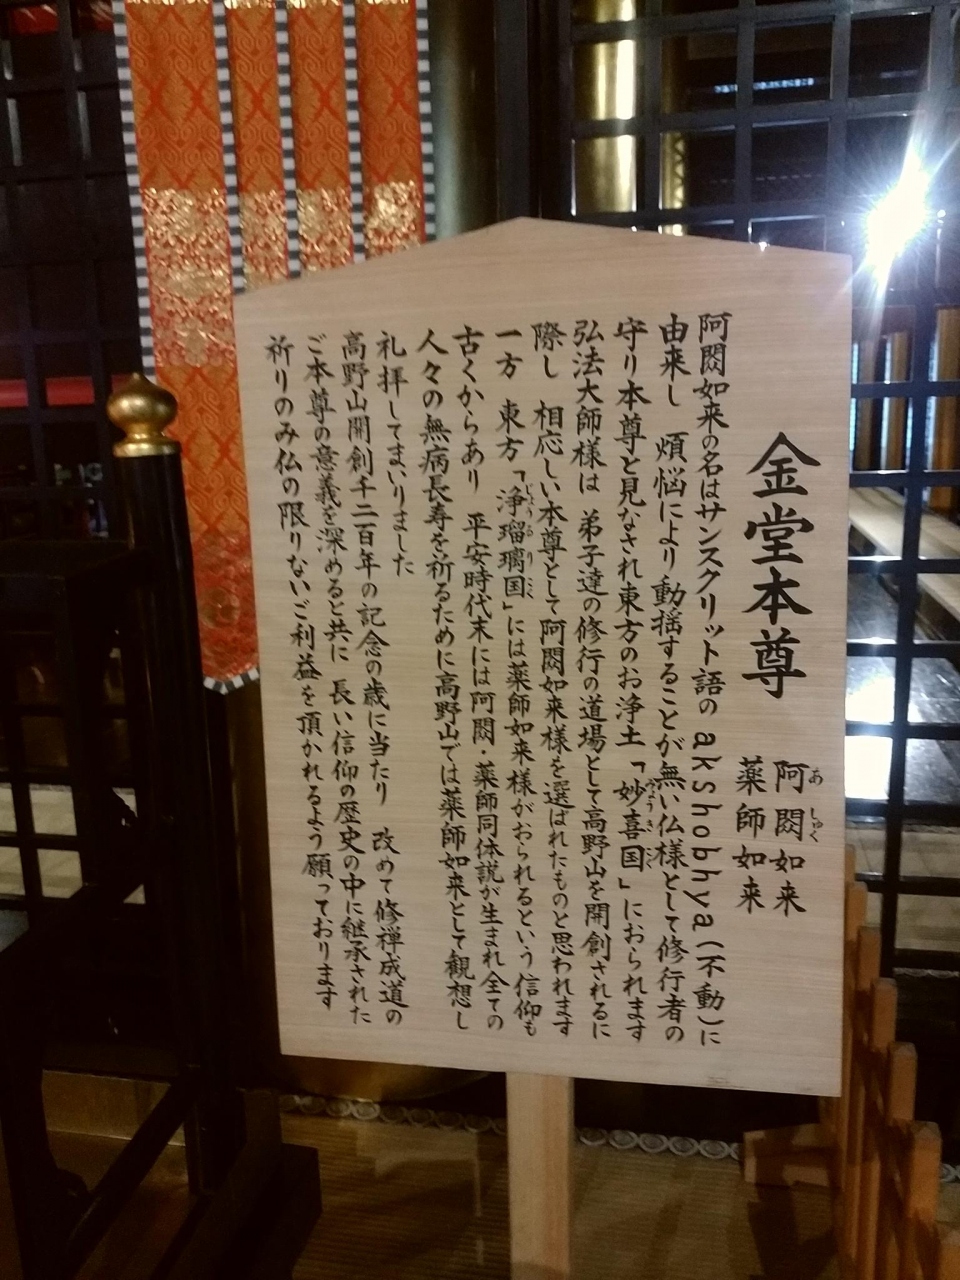 金堂本尊
阿閦如来
あしゅく
薬師如来
阿閦如来の名はサンスクリット語の akshobhya(不動)に
由来し 煩悩により動揺することが無い仏様として修行者の
守り本尊と見なされ東方のお浄土「妙喜国」におられます
みょうきこく
弘法大師様は 弟子達の修行の道場として高野山を開創されるに
際し 相応しい本尊として阿閦如来様を選ばれたものと思われます
一方 東方「浄瑠璃国」には薬師如来様がおられるという信仰も
じょうるりこく
古くからあり 平安時代末には阿閦・薬師同体説が生まれ全ての
人々の無病長寿を祈るために高野山では薬師如来として観想し
礼拝してまいりました
高野山開創千二百年の記念の歳に当たり 改めて修禅成道の
ご本尊の意義を深めると共に 長い信仰の歴史の中に継承された
祈りのみ仏の限りないご利益を頂かれるよう願っております